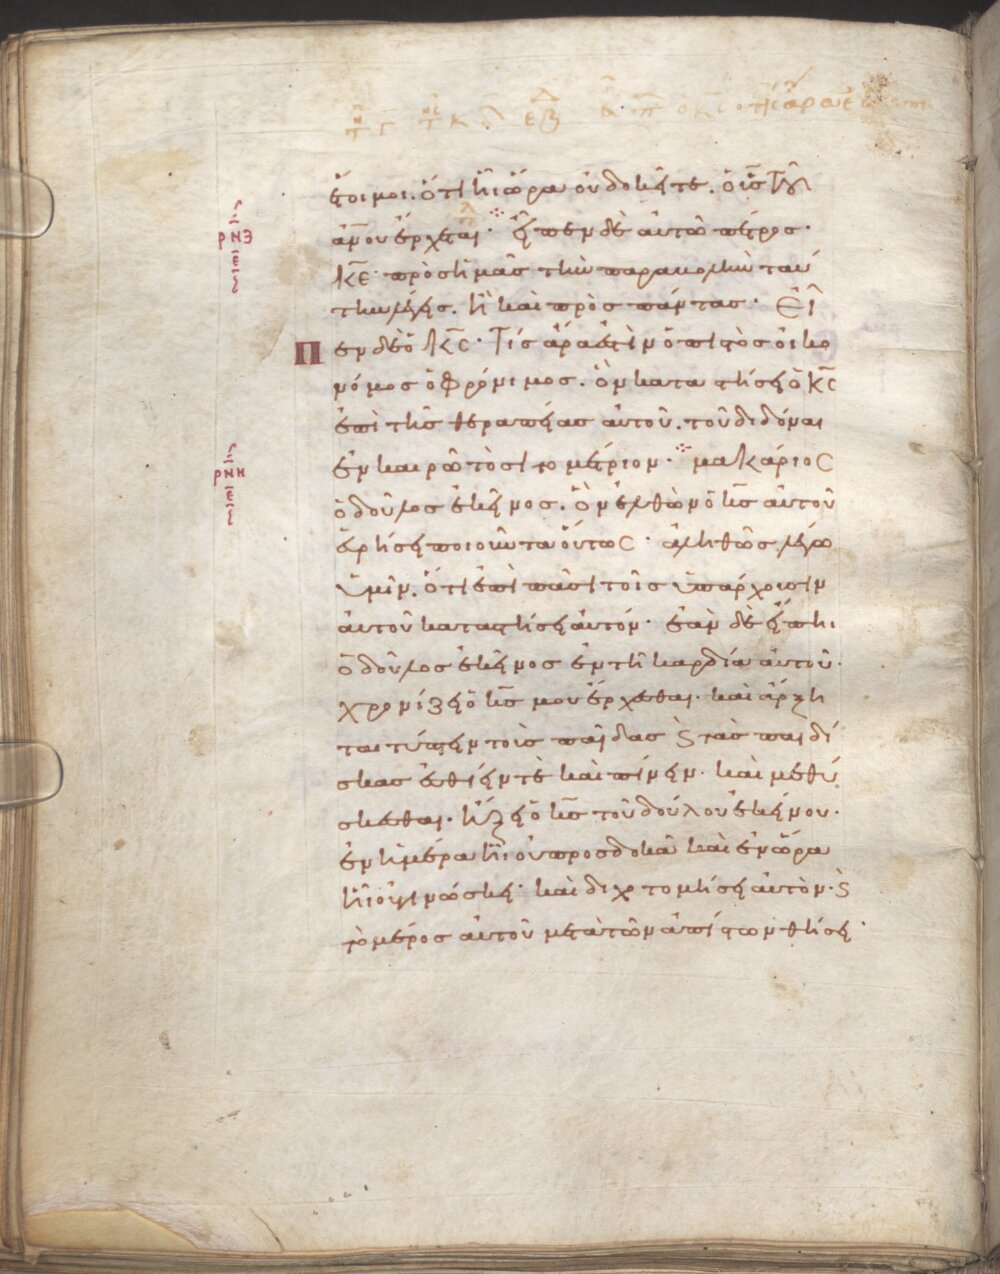 ἕτοιμοι. ὅτι ἧ ὥρα οὐ δοκεῖτε. ὁ υἱὸς τοῦ
ἀνου ἔρχεται· εἶπεν δὲ αὐτῶ πέτρος·
κε· πρὸς ἡμᾶς τὴν παραβολὴν ταύ
την λέγεις. ἢ καὶ πρὸς πάντας· εἶ
πεν δὲ ὁ κς· τίς ἄρα ἐστὶν ὁ πιστὸς οἰκο
νόμος ὁ φρόνιμος. ὃν καταστήσει ὁ κς
ἐπὶ τῆς θεραπείας αὐτοῦ. τοῦ διδόναι
ἐν καιρῶ τὸ σιτομέτριον· μακάριος
ὁ δοῦλος ἐκεῖνος. ὃν ἐλθὼν ὁ κς αὐτοῦ
εὑρήσει ποιοῦντα οὕτως· ἀληθῶς λέγω
ὑμῖν. ὅτι ἐπὶ πᾶσι τοῖς ὑπάρχουσιν
αὐτοῦ καταστήσει αὐτόν· ἐὰν δὲ εἴπη
ὁ δοῦλος ἐκεῖνος ἐν τῆ καρδία αὐτοῦ·
χρονίζει ὁ κς μου ἔρχεσθαι· καὶ ἄρξη
ται τύπτειν τοὺς παῖδας ϗ τὰς παιδί
σκας ἐσθίειν τὲ καὶ πίνειν· καὶ μεθύ
σκεσθαι· ἥξει ὁ κς τοῦ δούλου ἐκείνου·
ἐν ἡμέρα ἧ οὐ προσδοκᾶ καὶ ἐν ὥρα
ἧ οὐ γινώσκει· καὶ διχοτομήσει αὐτὸν· ϗ
τὸ μέρος αὐτοῦ μετὰ τῶν ἀπίστων θήσει·